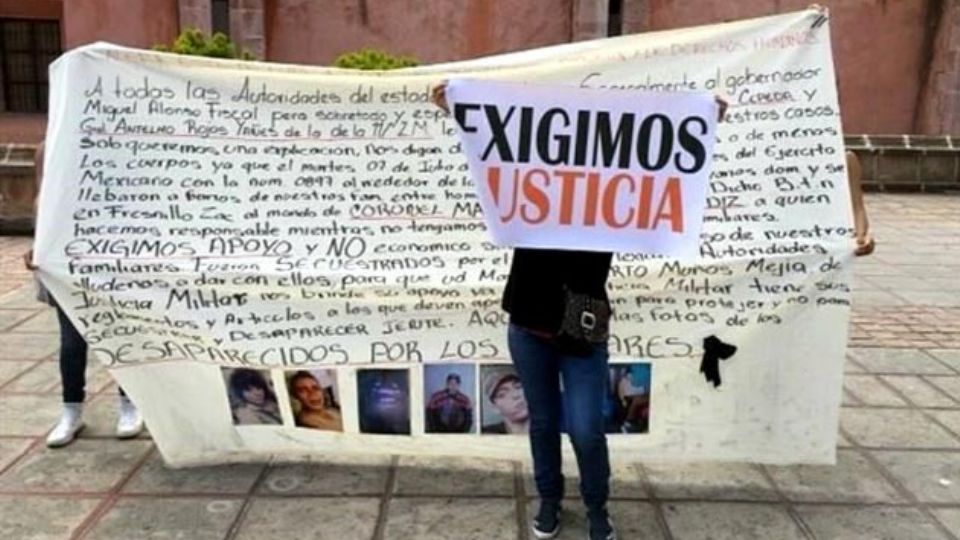 DERECHOS HUMANOS
A todos las Autoridades del estado Generalmente al gobernador
Miguel Alonso Fiscal pero sobretodo y CEPEDA y
Gral. ANTELMO ROJAS YAÑES de la de la 11/Z M. nuestros casos.
Solo queremos, una explicación, nos digan d o de menos
Los cuerpos ya que el martes 07 de Julio del Ejercito
Mexicano con la num. 0897 al rededor de la dom y se
llebaron a barios de nuestros fam. entre hom Dicho B.t.n
en Fresnillo Zac al mando de CORONEL MA DIZ a quien
hacemos responsable mientras no tengamos miliares.
EXIGIMOS APOYO y NO economico so de nuestros
familiares. Fueron SECUESTRADOS por el Autoridades
alludenos a dar con ellos, para que ud Ma ERTO Muños Mejia de
Justicia Militar nos brinde su apoyo ya Militar tiene sus
reglamentos y Articulos a los que deven ape para protejer y no para
SECUESTRAR y DESAPARECER JENTE. AQU las fotos de los
DESAPARECIDOS POR LOS ARES.
EXIGIMOS
JUSTICIA